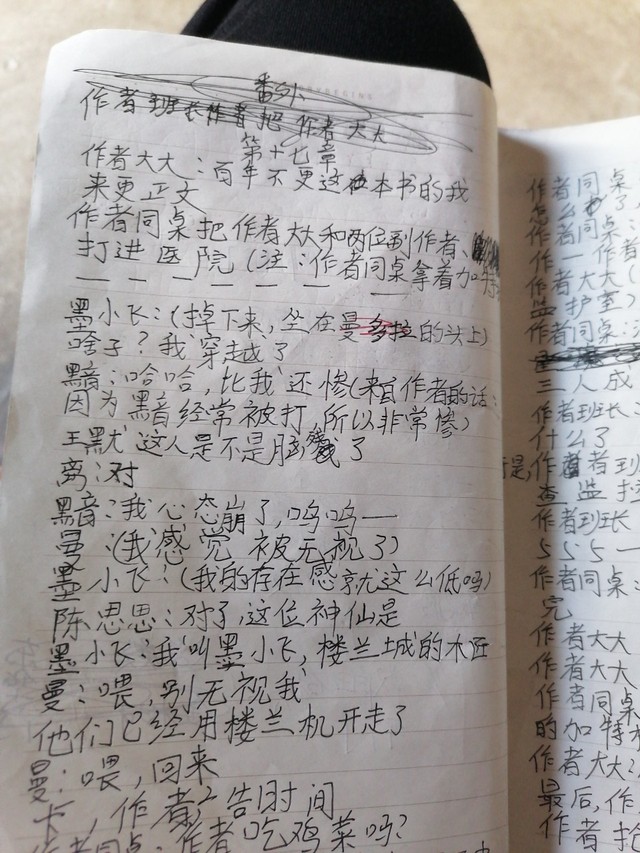 番外
作者班长作者把作者大大
第十七章
作者大大：百年不更这本书的我
来更正文
作者同桌把作者大大和两位副作者、
打进医院（注：作者同桌拿着加特
墨小飞：（掉下来，坐在曼多拉的头上）
啥子？我穿越了
黯：哈哈，比我还惨（来自作者的话：
因为黑音经常被打，所以非常惨）
王默：这人是不是脑残了
离：对
黑音：我心态崩了，呜呜一
曼：（我感觉被无视了）
墨小飞：（我的存在感就这么低吗）
陈思思：对了，这位神仙是
墨小飞：我叫墨小飞，楼兰城的木匠
曼：喂，别无视我
他们已经用楼兰机开走了
曼：喂，回来
卡，作者广告时间
作者同桌：作者吃鸡菜吗？
作者同桌
怎么
作者同桌：
作一作者
作者大大（
监护室）
作者同桌：
三人成
作者班长：
什么了
于是，作者班
查监控
作者班长
555一
作者同桌：
完
作者大大
作者大大
作者同桌
的加特
作者大大：
最后，作
作者抢